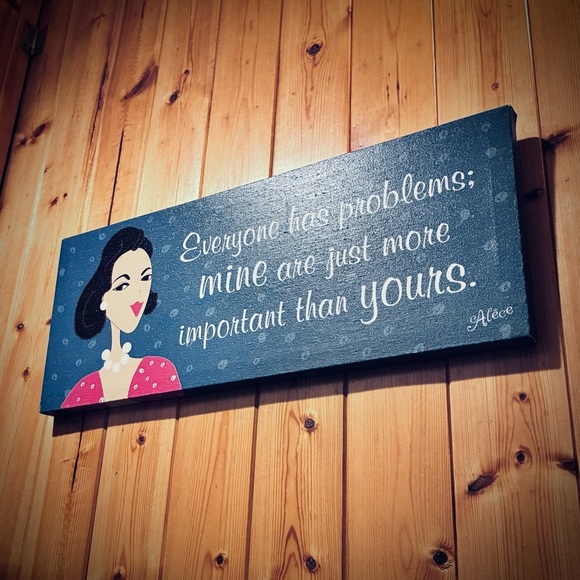 Everyone has problems;
mine are just more
important than yours.
Aléce